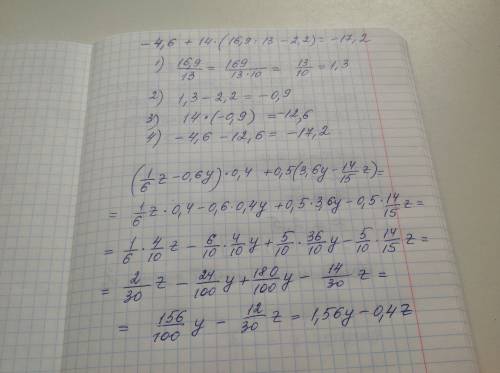 -4,6 + 14·(16,9 : 13 - 2,2) = -17,2
1) 16,9/13 = 169/13·10 = 13/10 = 1,3
2) 1,3 - 2,2 = -0,9
3) 14·(-0,9) = -12,6
4) -4,6 - 12,6 = -17,2
(1/6 z - 0,6y)·0,4 + 0,5(3,6y - 14/15 z) =
= 1/6 z·0,4 - 0,6·0,4y + 0,5·3,6y - 0,5·14/15 z =
= 1/6·4/10 z - 6/10·4/10 y + 5/10·36/10 y - 5/10·14/15 z =
= 2/30 z - 24/100 y + 180/100 y - 14/30 z =
= 156/100 y - 12/30 z = 1,56y - 0,4z